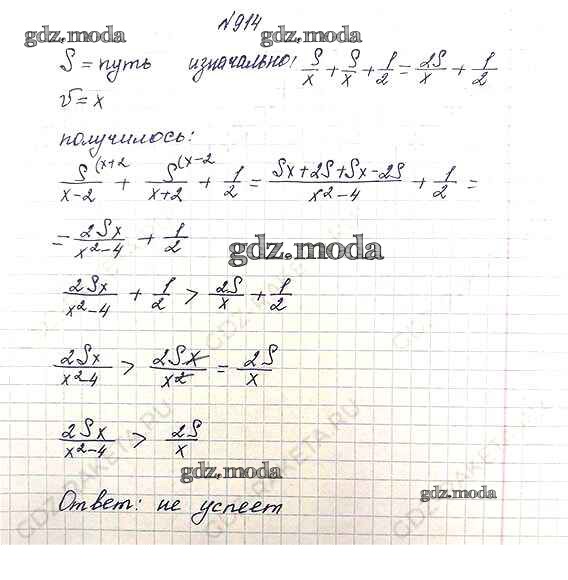 №914
gdz.moda gdz.moda
S = путь изначально: S/x + S/x + 1/2 = 2S/x + 1/2
v = x
получилось:
S(x+2/x-2 + S(x-2/x+2 + 1/2 = Sx+2S+Sx-2S/x²-4 + 1/2 =
= 2Sx/x²-4 + 1/2
gdz.moda
2Sx/x²-4 + 1/2 > 2S/x + 1/2
2Sx/x²-4 > 2Sx/x² = 2S/x
2Sx/x²-4 > 2S/x
gdz.moda
Ответ: не успеет
gdz.moda
GDZ-RAKETA.RU
GDZ-RAKETA.RU